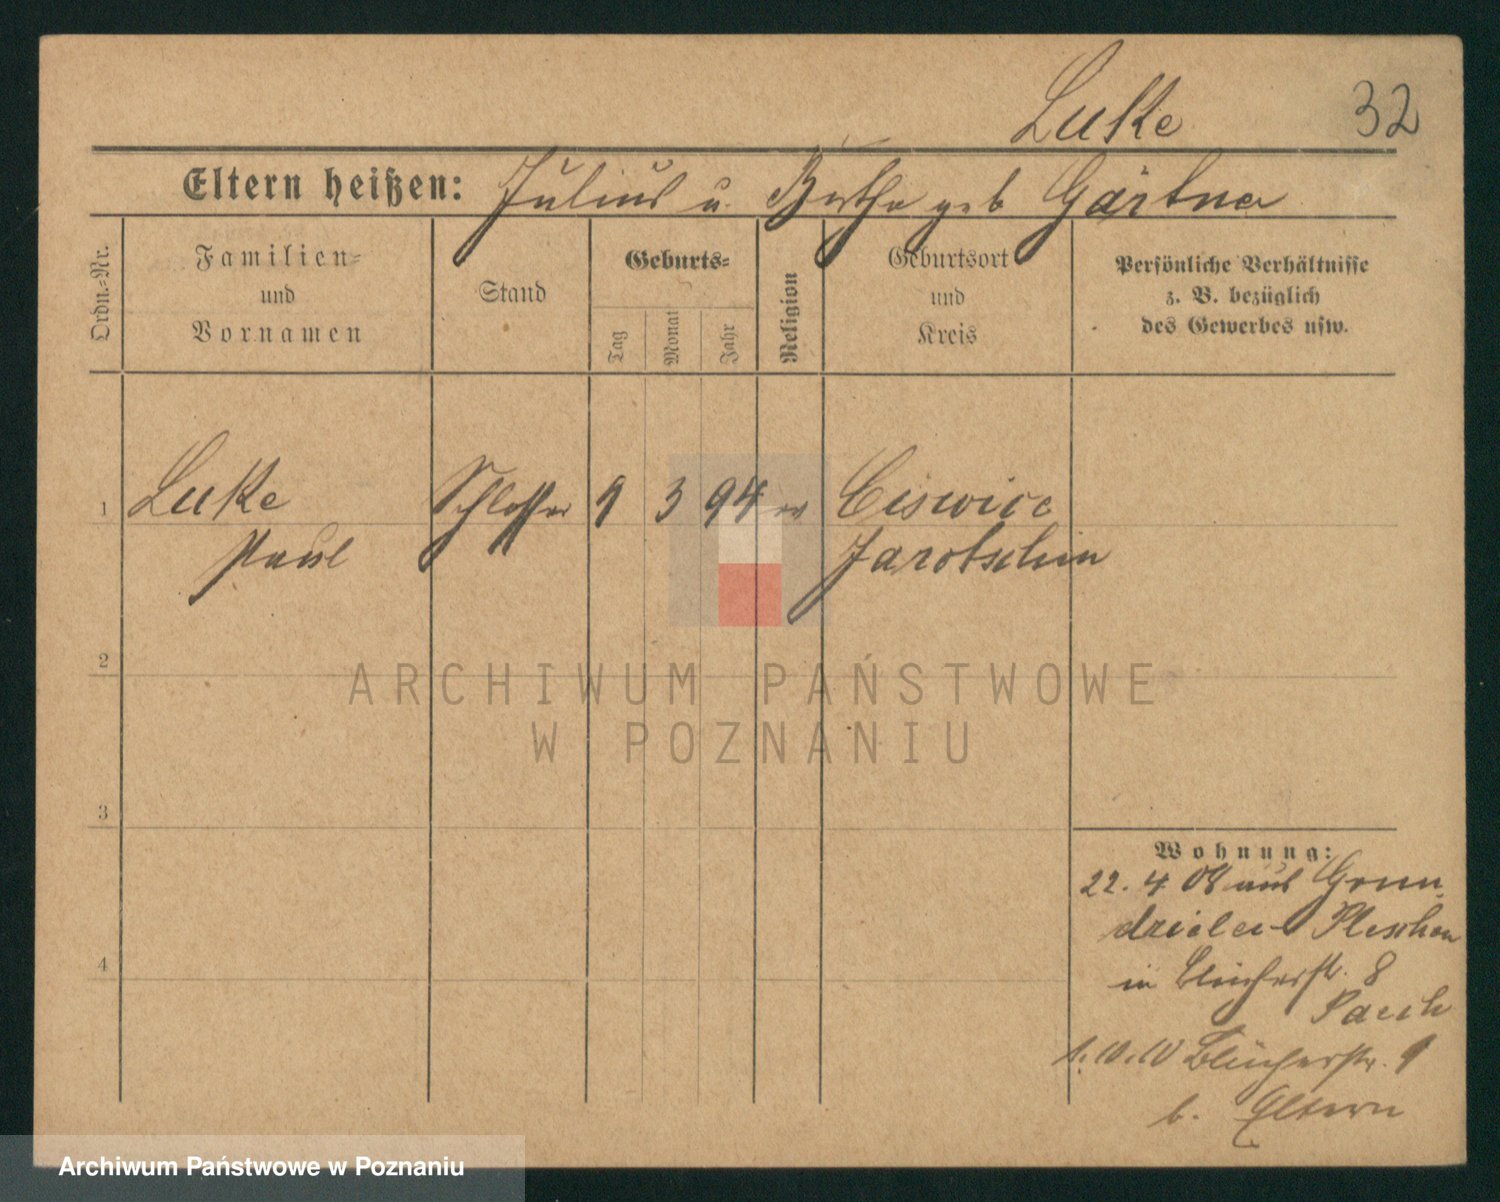 Luke 32
Eltern heißen: Julius u. Bertha geb Gärtner
Ordn.-Nr.
Familien-
und
Vornamen
Stand
Geburts-
Tag
Monat
Jahr
Religion
Geburtsort
und
Kreis
Persönliche Verhältnisse
z. B. bezüglich
des Gewerbes usw.
1 Luke Schlosser 9 3 94 ev Ciswice
Paul Jarotschin
2
3
4
Wohnung:
22. 4 08 aus
Pleschen
in Blücherstr. 8
1.10.10 Blücherstr. 9
b. Eltern
ARCHIWUM PAŃSTWOWE
W POZNANIU
Archiwum Państwowe w Poznaniu